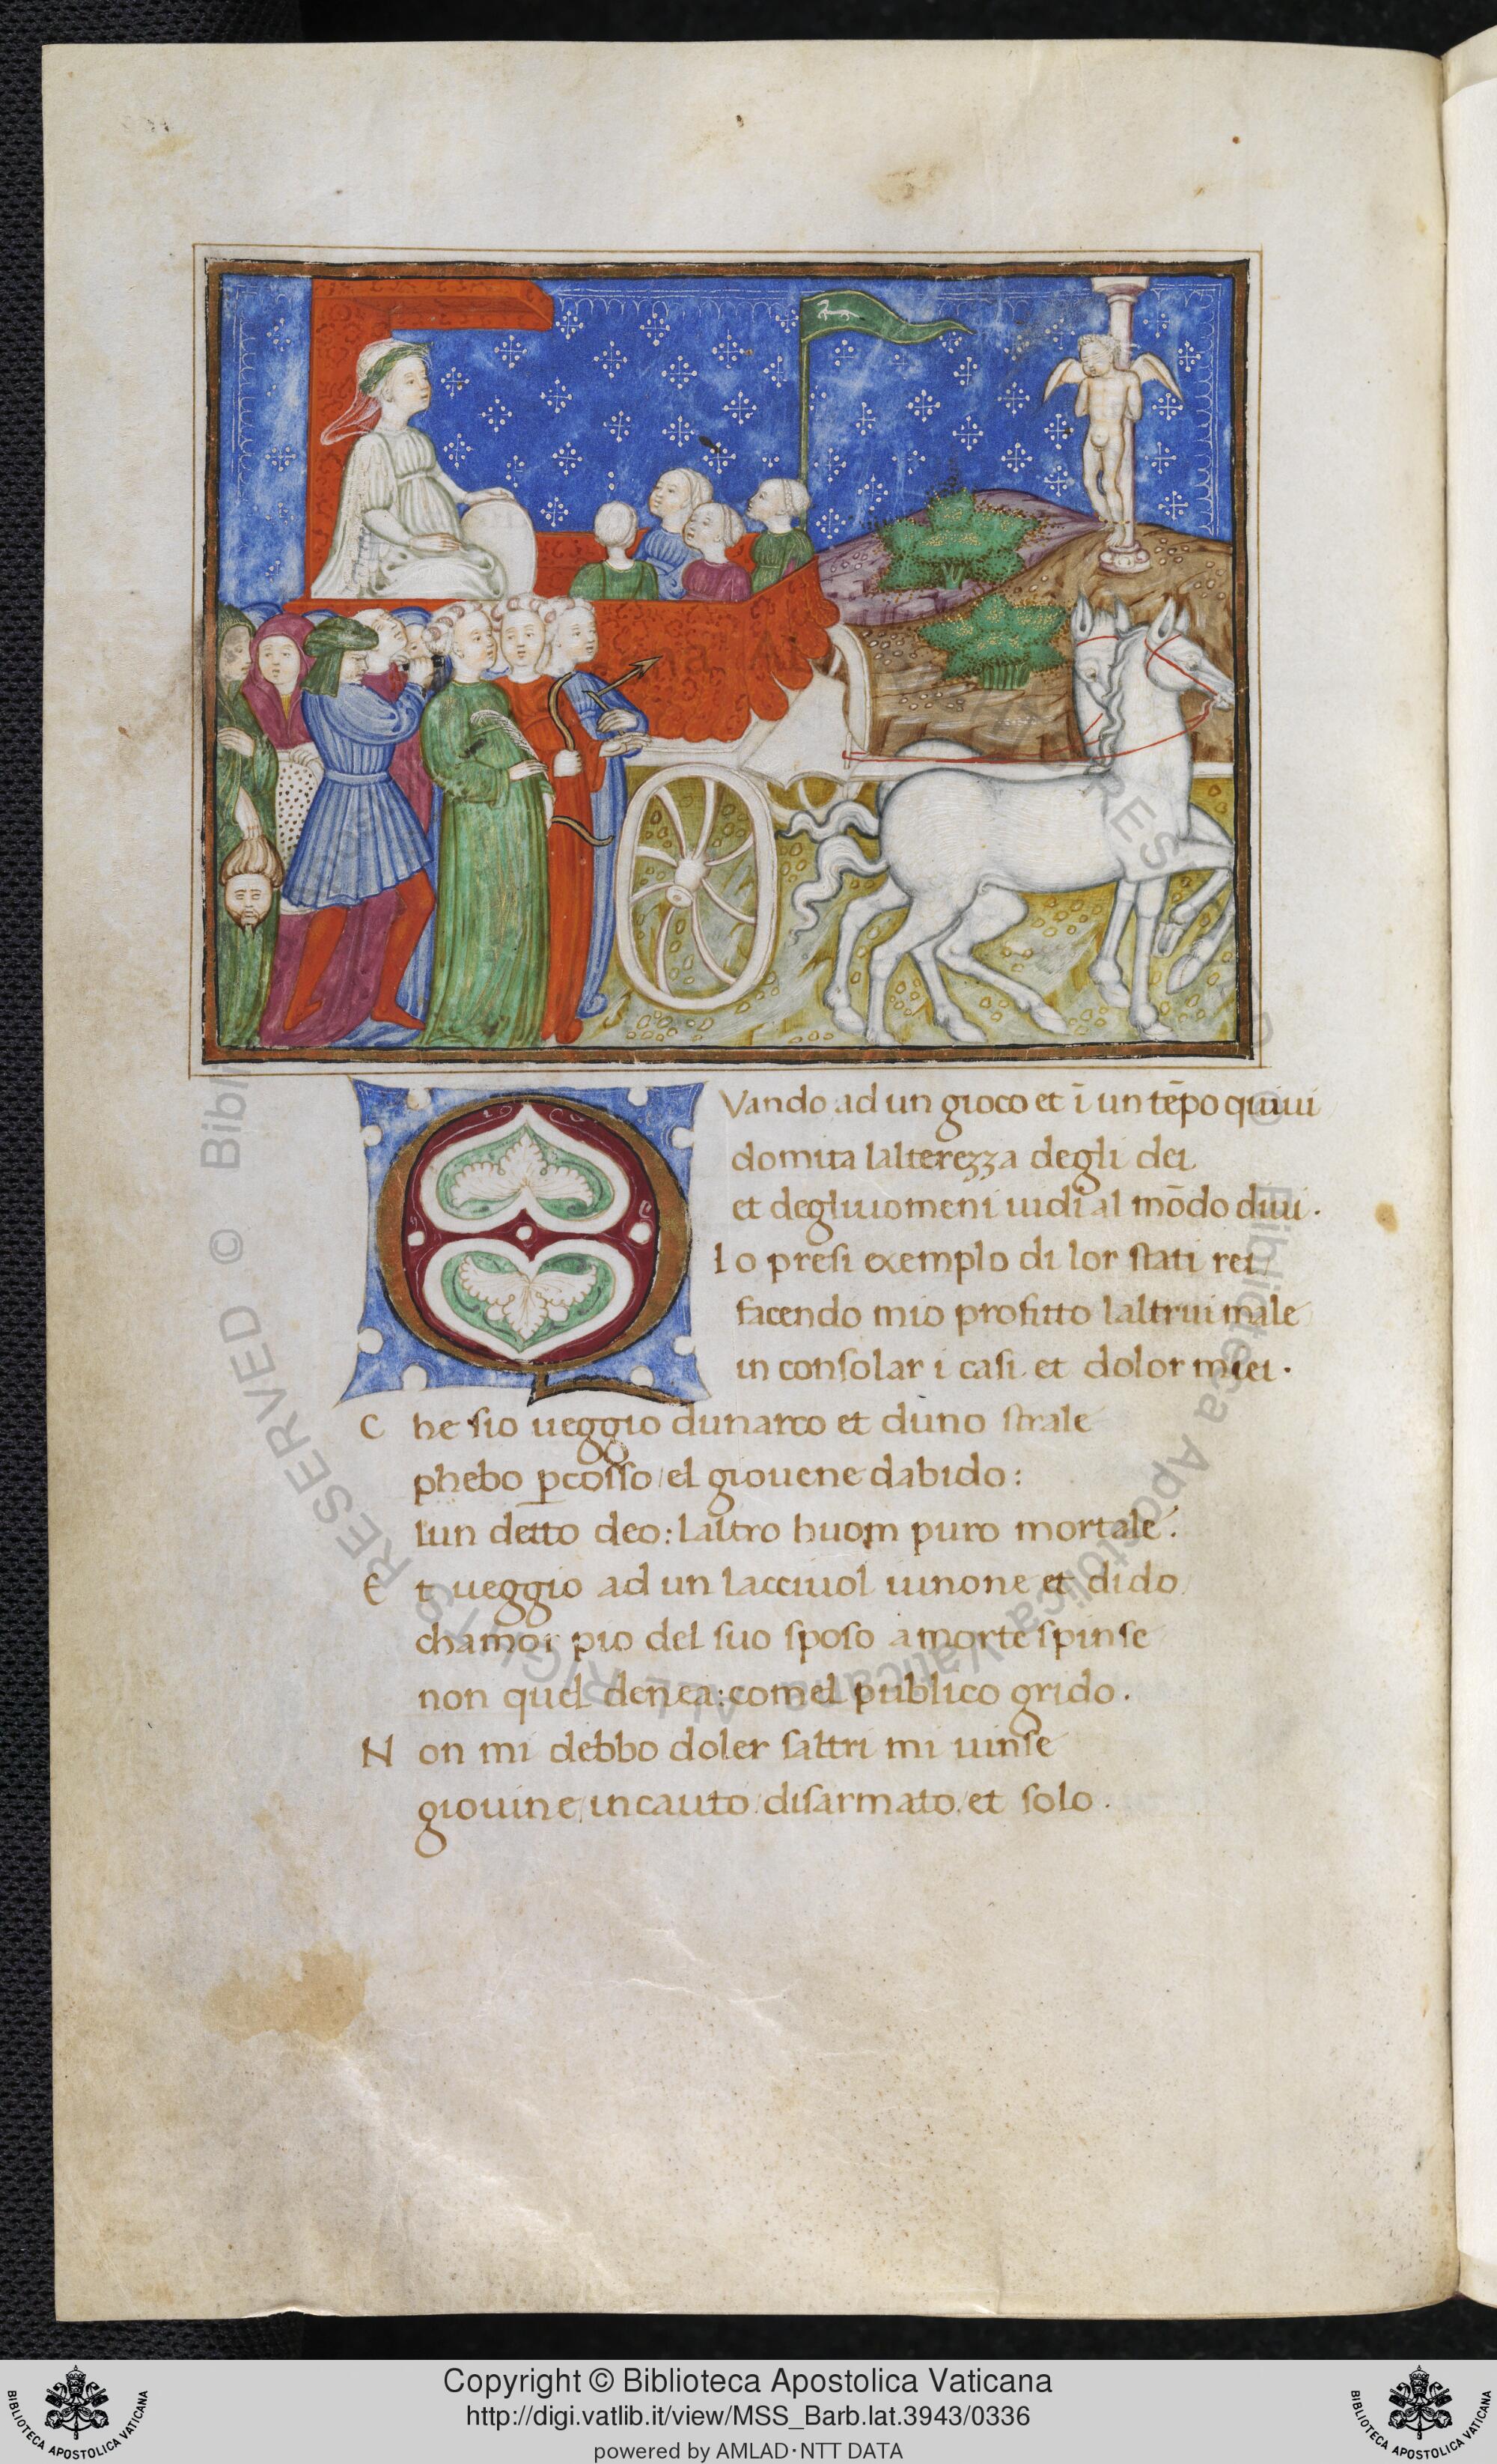 Vando ad un gioco et ī un tēpo quiui
domita lalterezza degli dei
et degliuiomeni uidi al mōdo diui.
Io presi exemplo di lor stati rei
facendo mio profitto laltrui male
in consolar i casi et dolor miei.
C he sio ueggio dunarco et duno strale
phebo ꝑcosso/el giouene dabido:
lun detto deo: laltro huom puro mortale.
E t ueggio ad un lacciuol iunone et dido
chamor pio del suo sposo a morte spinse
non quel denea: comel publico grido.
N on mi debbo doler saltri mi uinse
giouine/incauto/disarmato/et solo.
Copyright © Biblioteca Apostolica Vaticana
http://digi.vatlib.it/view/MSS_Barb.lat.3943/0336
powered by AMLAD·NTT DATA
BIBLIOTECA APOSTOLICA VATICANA
BIBLIOTECA APOSTOLICA VATICANA